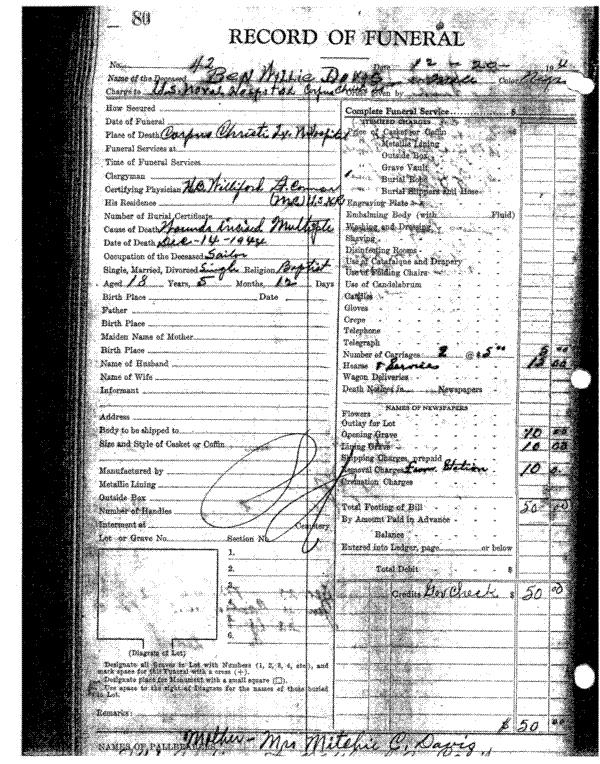 80
RECORD OF FUNERAL
No. 42 Date 12 - 20 - 194
Name of the Deceased Ben Willie Davis Color
Charge to U.S. Naval Hospital Corpus Christi given by
How Secured
Date of Funeral
Place of Death Corpus Christi Tx.
Funeral Services at
Time of Funeral Services
Clergyman
Certifying Physician H.B. Williford
His Residence (MC) U.S.N.R
Number of Burial Certificate
Cause of Death Wounds incised Multiple
Date of Death Dec-14-1944
Occupation of the Deceased Sailor
Single, Married, Divorced Single Religion Baptist
Aged 18 Years, 5 Months, 12 Days
Birth Place Date
Father
Birth Place
Maiden Name of Mother
Birth Place
Name of Husband
Name of Wife
Informant
Address
Body to be shipped to
Size and Style of Casket or Coffin
Manufactured by
Metallic Lining
Outside Box
Number of Handles
Interment at Cemetery
Lot or Grave No. Section No.
1.
2.
3.
4.
5.
6.
(Diagram of Lot)
Designate all Graves in Lot with Numbers (1, 2, 3, 4, etc.), and
mark space for this Funeral with a cross (+).
Designate place for Monument with a small square (□).
Use space to the right of Diagram for the names of those buried
in Lot.
Remarks:
Complete Funeral Service $
ITEMIZED CHARGES
Price of Casket or Coffin
Metallic Lining
Outside Box
Grave Vault
Burial Robe
Burial Slippers and Hose
Engraving Plate
Embalming Body (with Fluid)
Washing and Dressing
Shaving
Disinfecting Rooms
Use of Catafalque and Drapery
Use of Folding Chairs
Use of Candelabrum
Candles
Gloves
Crepe
Telephone
Telegraph
Number of Carriages 2 @ $ 5.00 5 00
Hearse & Services 15 00
Wagon Deliveries
Death Notices in Newspapers
NAMES OF NEWSPAPERS
Flowers
Outlay for Lot
Opening Grave 10 00
Lining Grave 10 00
Shipping Charges, prepaid
Removal Charges From Station 10 0.
Cremation Charges
Total Footing of Bill 50 00
By Amount Paid in Advance
Balance
Entered into Ledger, page or below
Total Debit $
Credits Gov Check $ 50 00
$ 50 00
Mother - Mrs Mitchie C. Davis
NAMES OF PALLBEARERS